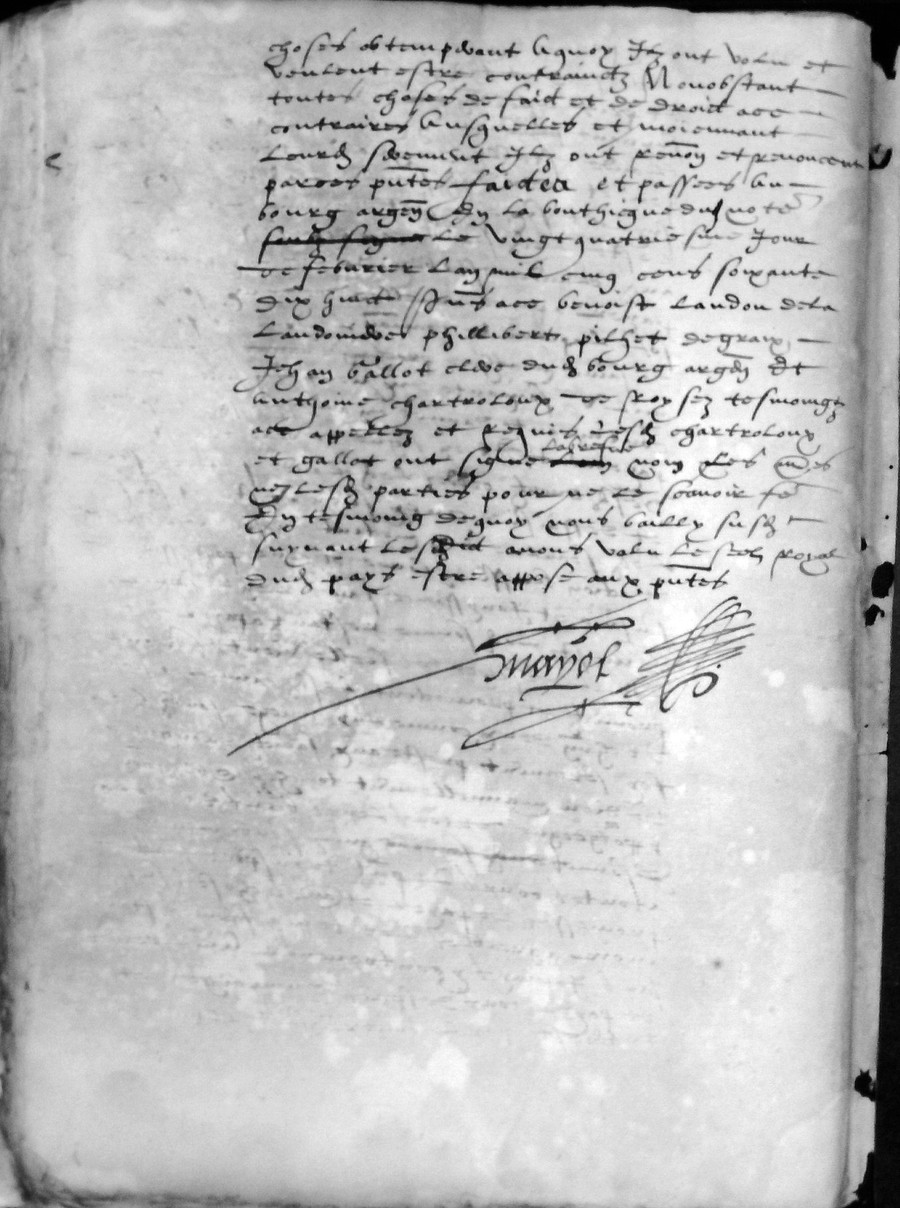 choses obtemperant a quoy Ilz ont volu et
veulent estre contrainctz Nonobstant
toutes choses de faict et de droict ace
contraires Ausquelles et moiennant
leurd serement Ilz ont renon et renoncent
par ces pntes faictes et passees Au
bourg argen En la bouthicque dud note
le vingt quatriesme Jour
de febvrier lan mil cinq cens soixante
dix huict pns ace benoist Landon de la
Landonniere phillibert pilhet de graix
Jehan gallot clerc dud bourg argen Et
Anthoine chartroloux de froysez tesmoingz
ace appellez et requis lesd chartroloux
et gallot ont signe la breste non les aues
ny lesd parties pour ne le scavoir fe
En tesmoing de quoy nous bailly susd
suyvant led edict avons volu le seel royal
dud pays estre appose aux pntes
mayol